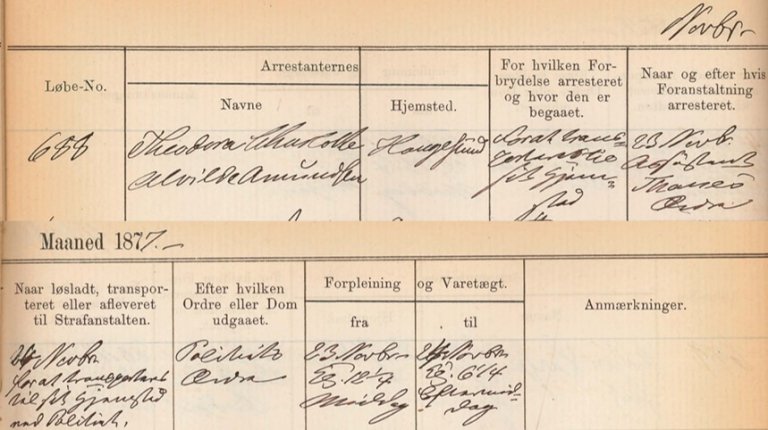 Novbr.
Løbe-No.
Arrestanternes
Navne
Hjemsted.
For hvilken For-
brydelse arresteret
og hvor den er
begaaet.
Naar og efter hvis
Foranstaltning
arresteret.
688
Theodora Charlotte
Alvilde Amundsen
Haugesund
for at trans=
porteres til
sit Hjem=
sted
23 Novb.
Assistent
Ordre
Maaned 1877.-
Naar løsladt, transpor-
teret eller afleveret
til Strafanstalten.
Efter hvilken
Ordre eller Dom
udgaaet.
Forpleining
og Varetægt.
fra
til
Anmærkninger.
24 Novbr
for at transporteres
til sit Hjemsted
ved Politiet.
Politiets
Ordre
23 Novbr
Kl. 12¼
Middag
24 Novbr
Kl. 6¼
Eftermid-
dag